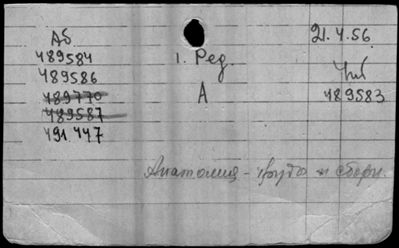 Аб.
489584
489586
489770
489587
491.447
1. Ред.
А
21.4.56.
Чит
489583
Анатомия - труды и сборн.